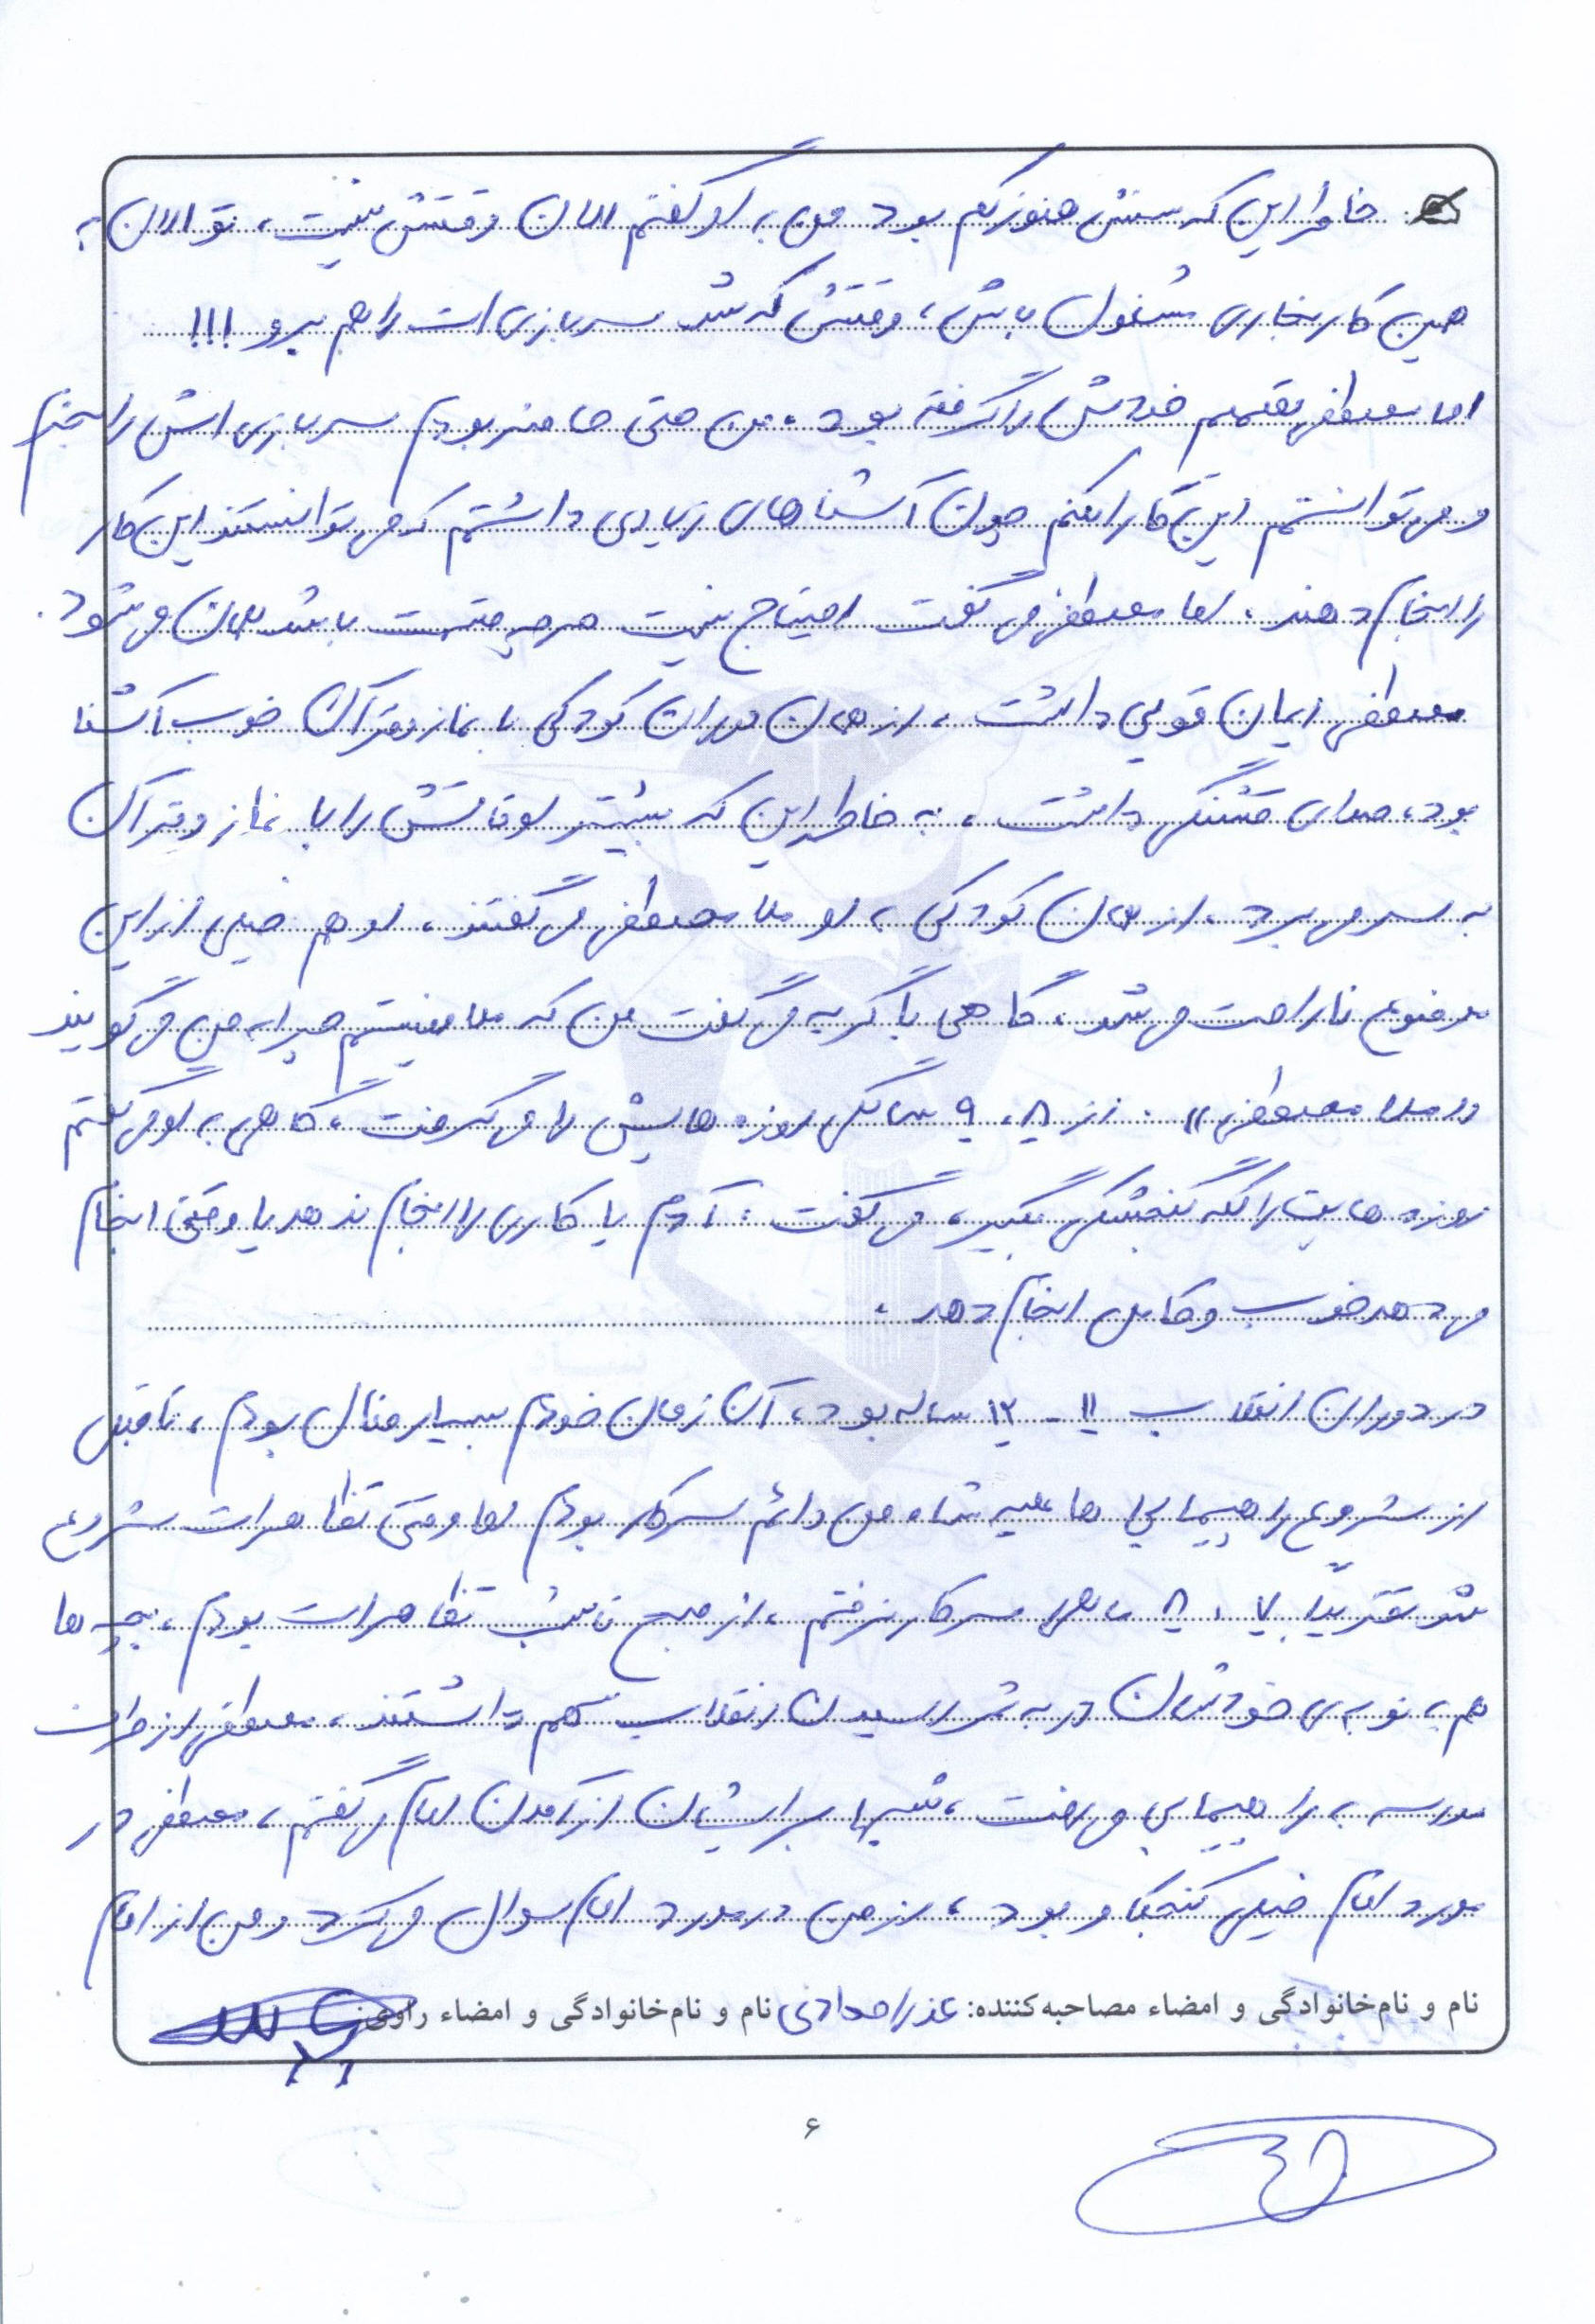 خاطر این که سنش هنوز کم بود من به او گفتم الان وقتش نیست، تو الان به
همین کار نجاری مشغول باش، وقتش که شد سربازی ات را هم برو !!!
اما مصطفی تصمیم خودش را گرفته بود، من حتی حاضر بودم سربازی اش را بخرم
و می توانستم این کار را بکنم چون آشناهای زیادی داشتم که می توانستند این کار
را انجام دهند، اما مصطفی می گفت احتیاج نیست هر چه قسمت باشد همان می شود.
مصطفی ایمان قویی داشت، از همان دوران کودکی با نماز و قرآن خوب آشنا
بود، صدای قشنگی داشت، به خاطر این که بیشتر اوقاتش را با نماز و قرآن
به سر می برد، از همان کودکی به او ملا مصطفی می گفتند، او هم خیلی از این
موضوع ناراحت می شد، گاهی با گریه می گفت من که ملا نیستم چرا به من می گویند
«ملا مصطفی». از ۸، ۹ سالگی روزه هایش را می گرفت، گاهی به او می گفتم
روزه هایت را کله گنجشکی بگیر، می گفت: آدم یا کاری را انجام ندهد یا وقتی انجام
می دهد خوب و کامل انجام دهد.
در دوران انقلاب ۱۱ - ۱۲ ساله بود، آن زمان خودم بسیار فعال بودم، تا قبل
از شروع راهپیمایی ها علیه شاه من دائم سرکار بودم اما وقتی تظاهرات شروع
شد تقریباً ۷، ۸ ماهی سرکار نرفتم، از صبح تا شب تظاهرات بودم، بچه ها
هم به نوبه ی خودشان در به ثمر رسیدن انقلاب سهم داشتند، مصطفی از طرف
مدرسه به راهپیمایی می رفت، شبها برایشان از آمدن امام می گفتم، مصطفی در
مورد امام خیلی کنجکاو بود، از من در مورد امام سوال می کرد و من از امام
نام و نام‌خانوادگی و امضاء مصاحبه‌کننده: عذرا نام و نام‌خانوادگی و امضاء راوی:
۶